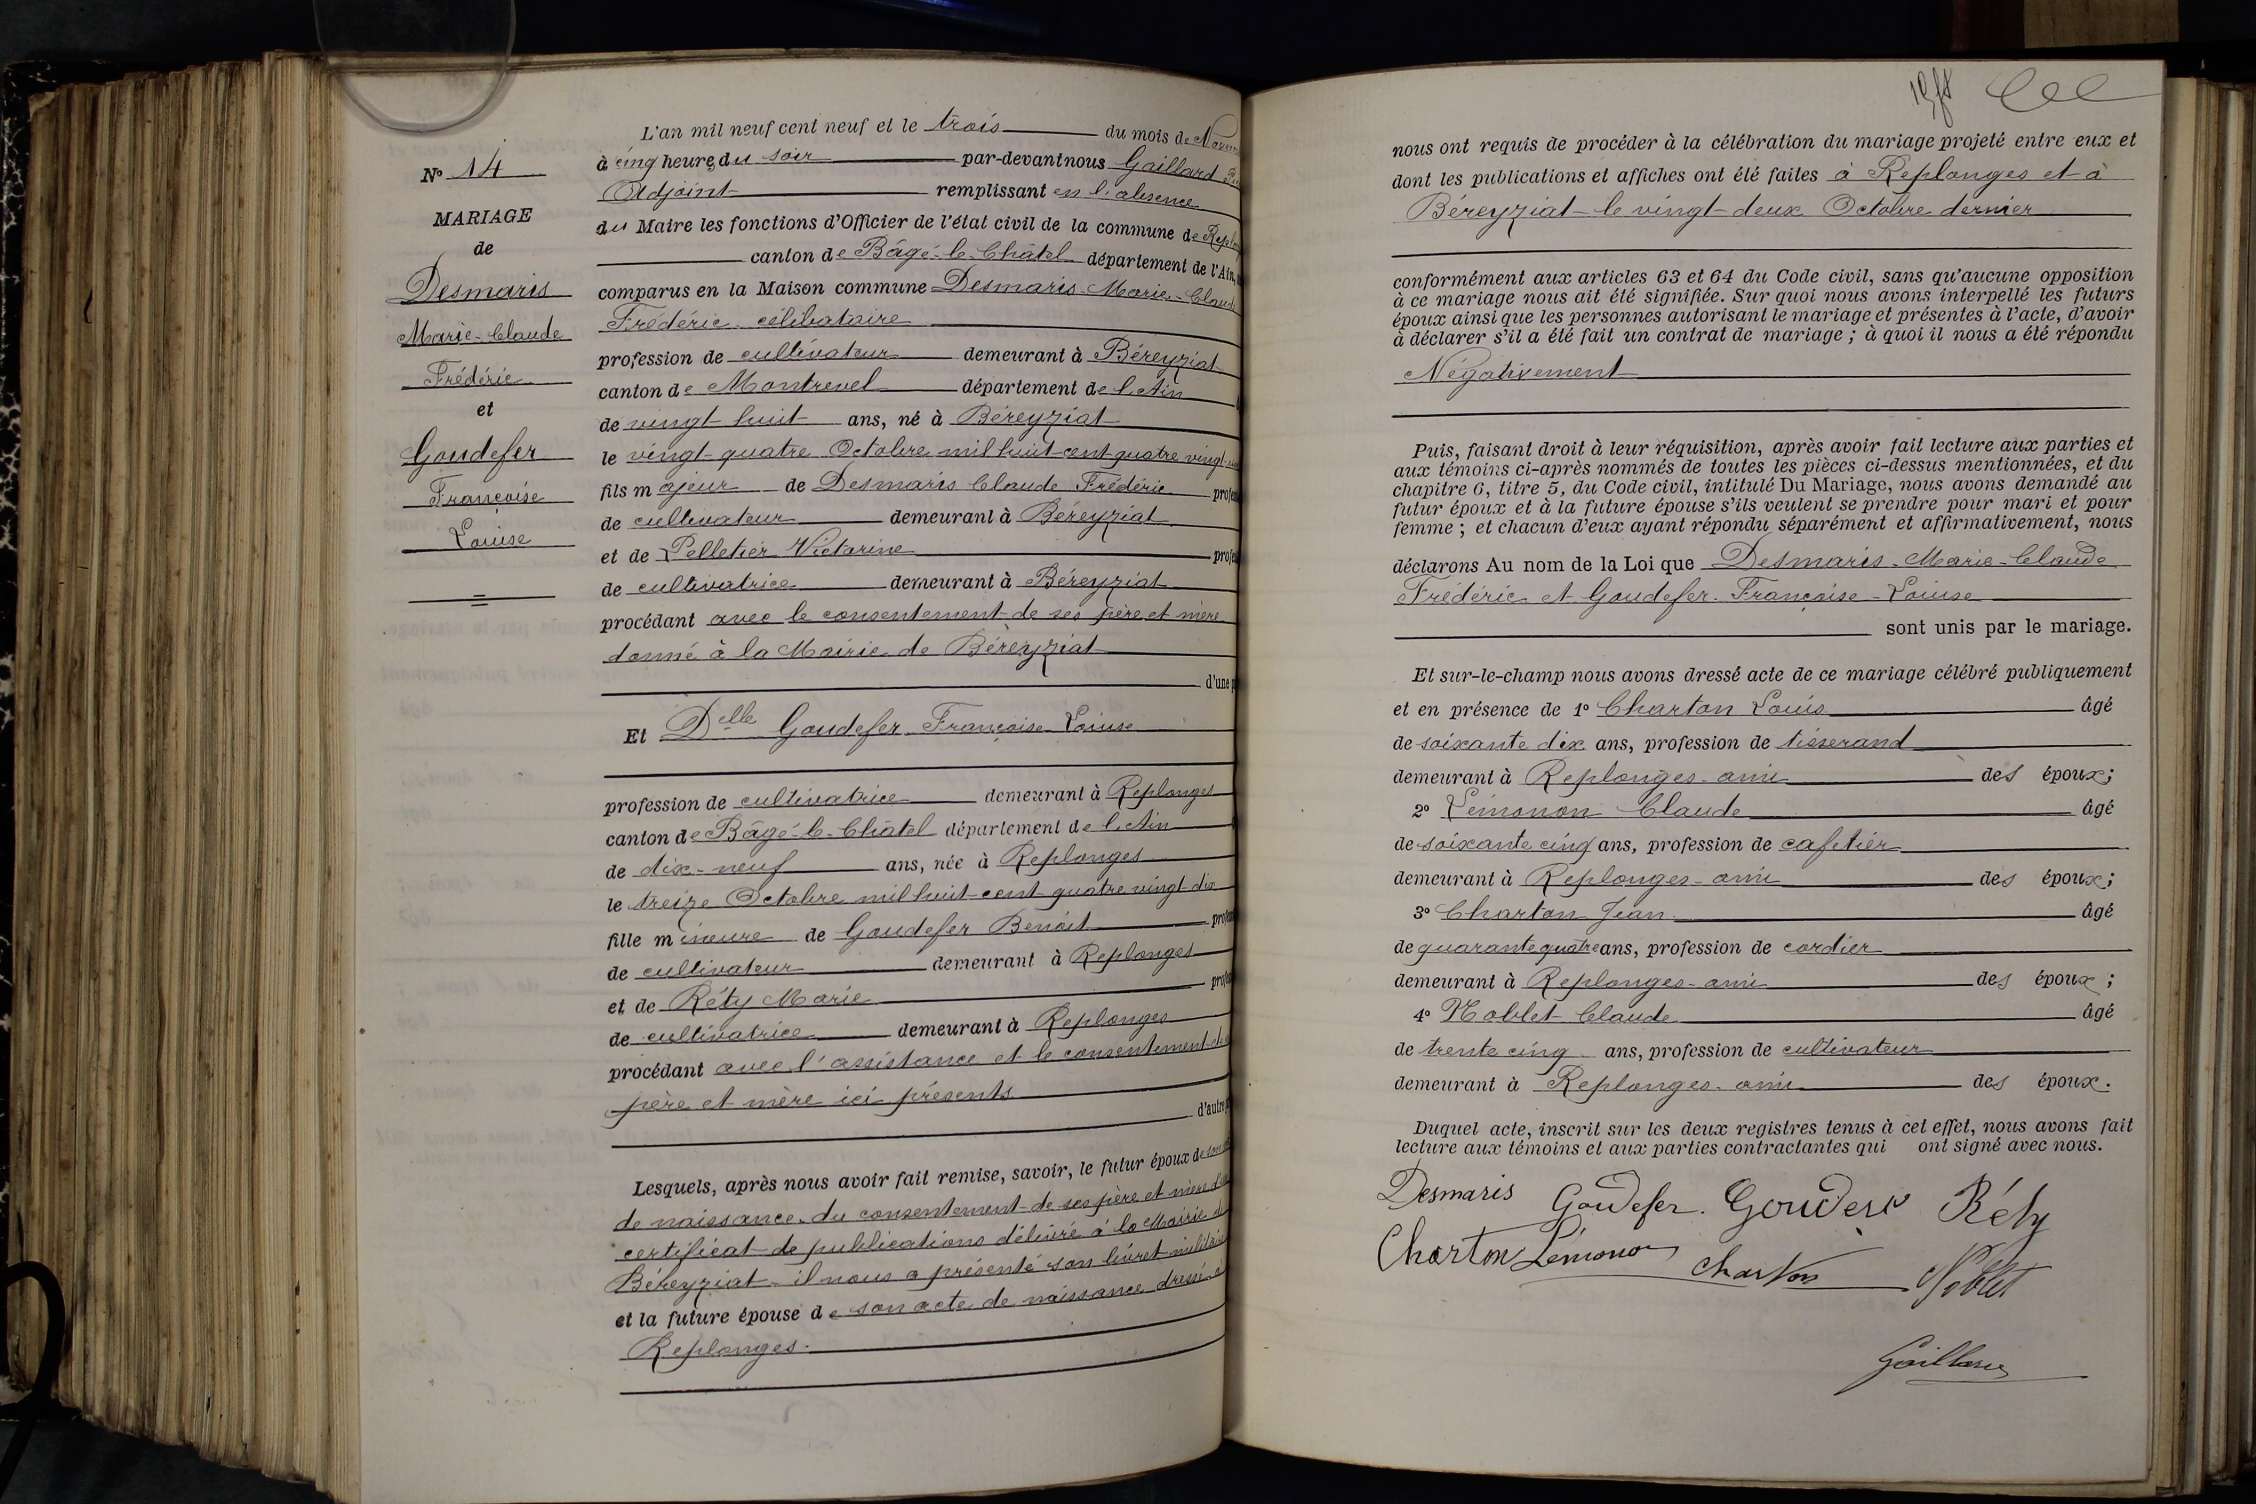 L'an mil neuf cent neuf et le trois du mois de
à cinq heures du soir par-devant nous Gaillard
Adjoint remplissant en l'absence
du Maire les fonctions d'Officier de l'état civil de la commune de
canton de Bâgé-le-Châtel département de l'Ain,
comparus en la Maison commune Desmaris Marie-Claude
Frédéric célibataire
profession de cultivateur demeurant à Béreyziat
canton de Montrevel département de l'Ain
de vingt huit ans, né à Béreyziat
le vingt-quatre Octobre mil huit-cent quatre vingt
fils majeur de Desmaris Claude Frédéric
de cultivateur demeurant à Béreyziat
et de Pelletier Victorine
de cultivatrice demeurant à Béreyziat
procédant avec le consentement de ses père et mère
donné à la Mairie de Béreyziat
d'une
Et Delle Goudefer Françoise Louise
profession de cultivatrice demeurant à Replonges
canton de Bâgé-le-Châtel département de l'Ain
de dix-neuf ans, née à Replonges
le treize Octobre mil huit-cent quatre vingt dix
fille mineure de Goudefer Benoit
de cultivateur demeurant à Replonges
et de Réty Marie
de cultivatrice demeurant à Replonges
procédant avec l'assistance et le consentement de
père et mère ici présents
d'autre
Lesquels, après nous avoir fait remise, savoir, le futur époux de
de naissance, du consentement de ses père et mère
certificat de publications délivré à la Mairie de
Béreyziat il nous a présenté son livret militaire
et la future épouse de son acte de naissance dressé à
Replonges.
No 14
MARIAGE
de
Desmaris
Marie-Claude
Frédéric
et
Goudefer
Françoise
Louise
nous ont requis de procéder à la célébration du mariage projeté entre eux et
dont les publications et affiches ont été faites à Replonges et à
Béreyziat le vingt-deux Octobre dernier
conformément aux articles 63 et 64 du Code civil, sans qu'aucune opposition
à ce mariage nous ait été signifiée. Sur quoi nous avons interpellé les futurs
époux ainsi que les personnes autorisant le mariage et présentes à l'acte, d'avoir
à déclarer s'il a été fait un contrat de mariage ; à quoi il nous a été répondu
Négativement
Puis, faisant droit à leur réquisition, après avoir fait lecture aux parties et
aux témoins ci-après nommés de toutes les pièces ci-dessus mentionnées, et du
chapitre 6, titre 5, du Code civil, intitulé Du Mariage, nous avons demandé au
futur époux et à la future épouse s'ils veulent se prendre pour mari et pour
femme ; et chacun d'eux ayant répondu séparément et affirmativement, nous
déclarons Au nom de la Loi que Desmaris Marie-Claude
Frédéric et Goudefer Françoise-Louise
sont unis par le mariage.
Et sur-le-champ nous avons dressé acte de ce mariage célébré publiquement
et en présence de 1º Charton Louis âgé
de soixante dix ans, profession de tisserand
demeurant à Replonges ami des époux ;
2º Lémonon Claude âgé
de soixante cinq ans, profession de cafetier
demeurant à Replonges ami des époux ;
3º Charton Jean âgé
de quarante quatre ans, profession de cordier
demeurant à Replonges ami des époux ;
4º Noblet Claude âgé
de trente cinq ans, profession de cultivateur
demeurant à Replonges ami des époux.
Duquel acte, inscrit sur les deux registres tenus à cet effet, nous avons fait
lecture aux témoins et aux parties contractantes qui ont signé avec nous.
Desmaris Goudefer. Réty
Charton Lémonon Charton Noblet
Gaillard